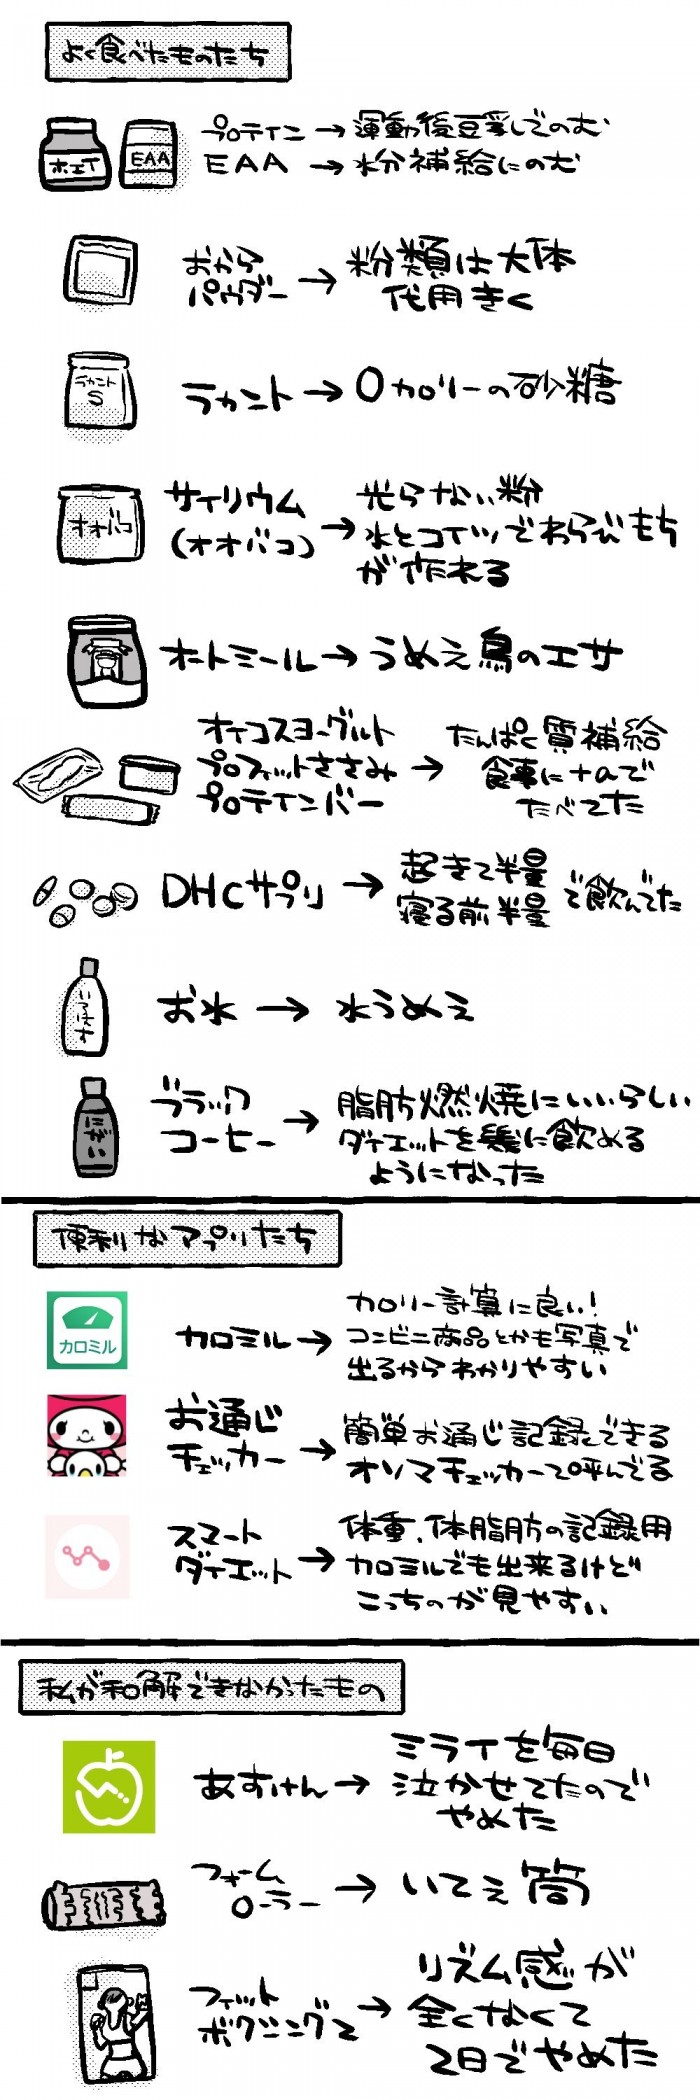 よく食べたものたち
ホエイ
EAA
プロテイン→運動後豆乳でのむ
EAA→水分補給にのむ
おから
パウダー
→粉類は大体
代用きく
ラカント
S
ラカント→0カロリーの砂糖
オオバコ
サイリウム
(オオバコ)
→光らない粉
水とコイツでわらびもち
が作れる
オートミール→うめえ鳥のエサ
オイコスヨーグルト
プロフィットささみ
プロテインバー
→たんぱく質補給
食事に+αで
たべてた
DHCサプリ→起きて半量
寝る前半量
で飲んでた
いろはす
お水→水うめえ
にがい
ブラック
コーヒー
→脂肪燃焼にいいらしい
ダイエットを機に飲める
ようになった
便利なアプリたち
カロミル
カロミル→カロリー計算に良い!
コンビニ商品とかも写真で
出るからわかりやすい
お通じ
チェッカー
→簡単お通じ記録できる
オソマチェッカーって呼んでる
スマート
ダイエット
→体重、体脂肪の記録用
カロミルでも出来るけど
こっちのが見やすい
私が和解できなかったもの
あすけん→ミライを毎日
泣かせてたので
やめた
フォーム
ローラー
→いてえ筒
フィット
ボクシング2
→リズム感が
全くなくて
2日でやめた